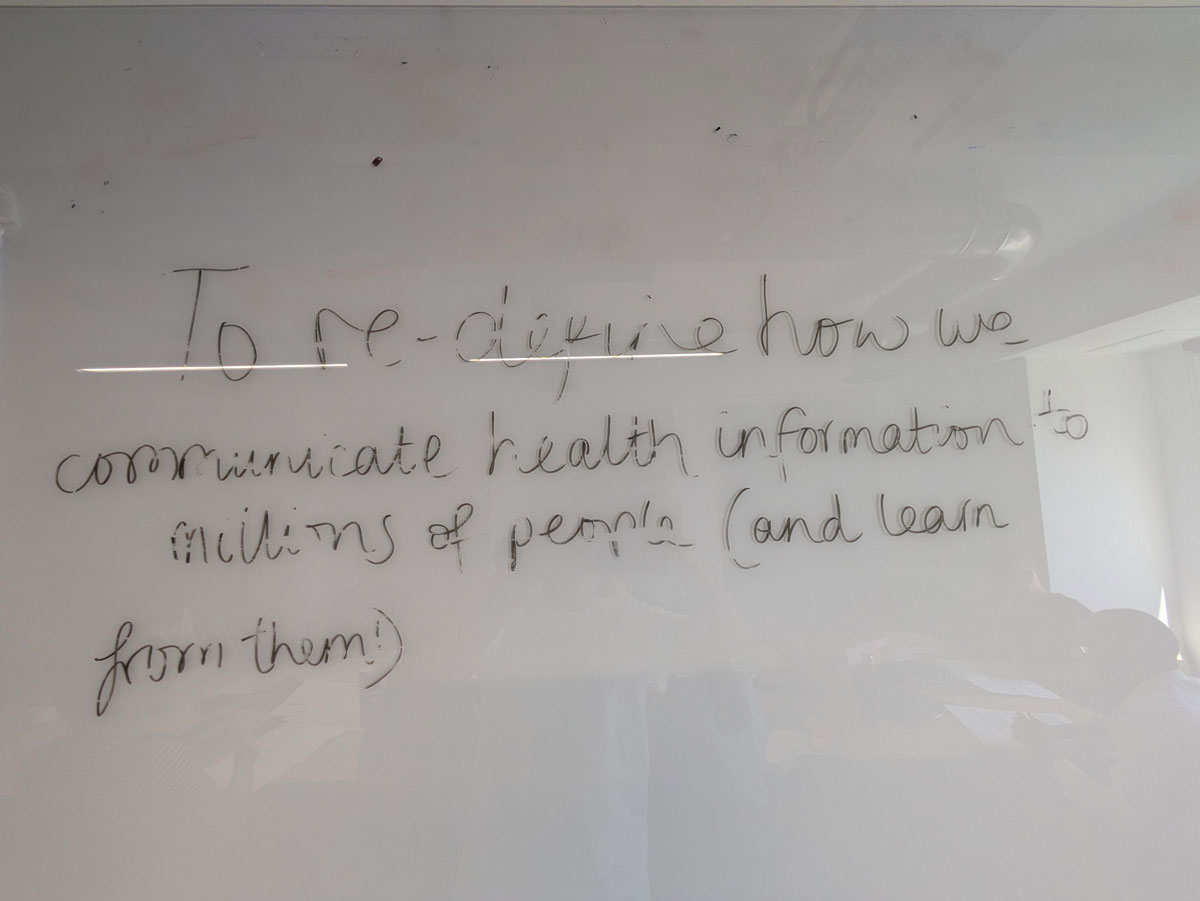 To re-define how we
communicate health information to
millions of people (and learn
from them!)